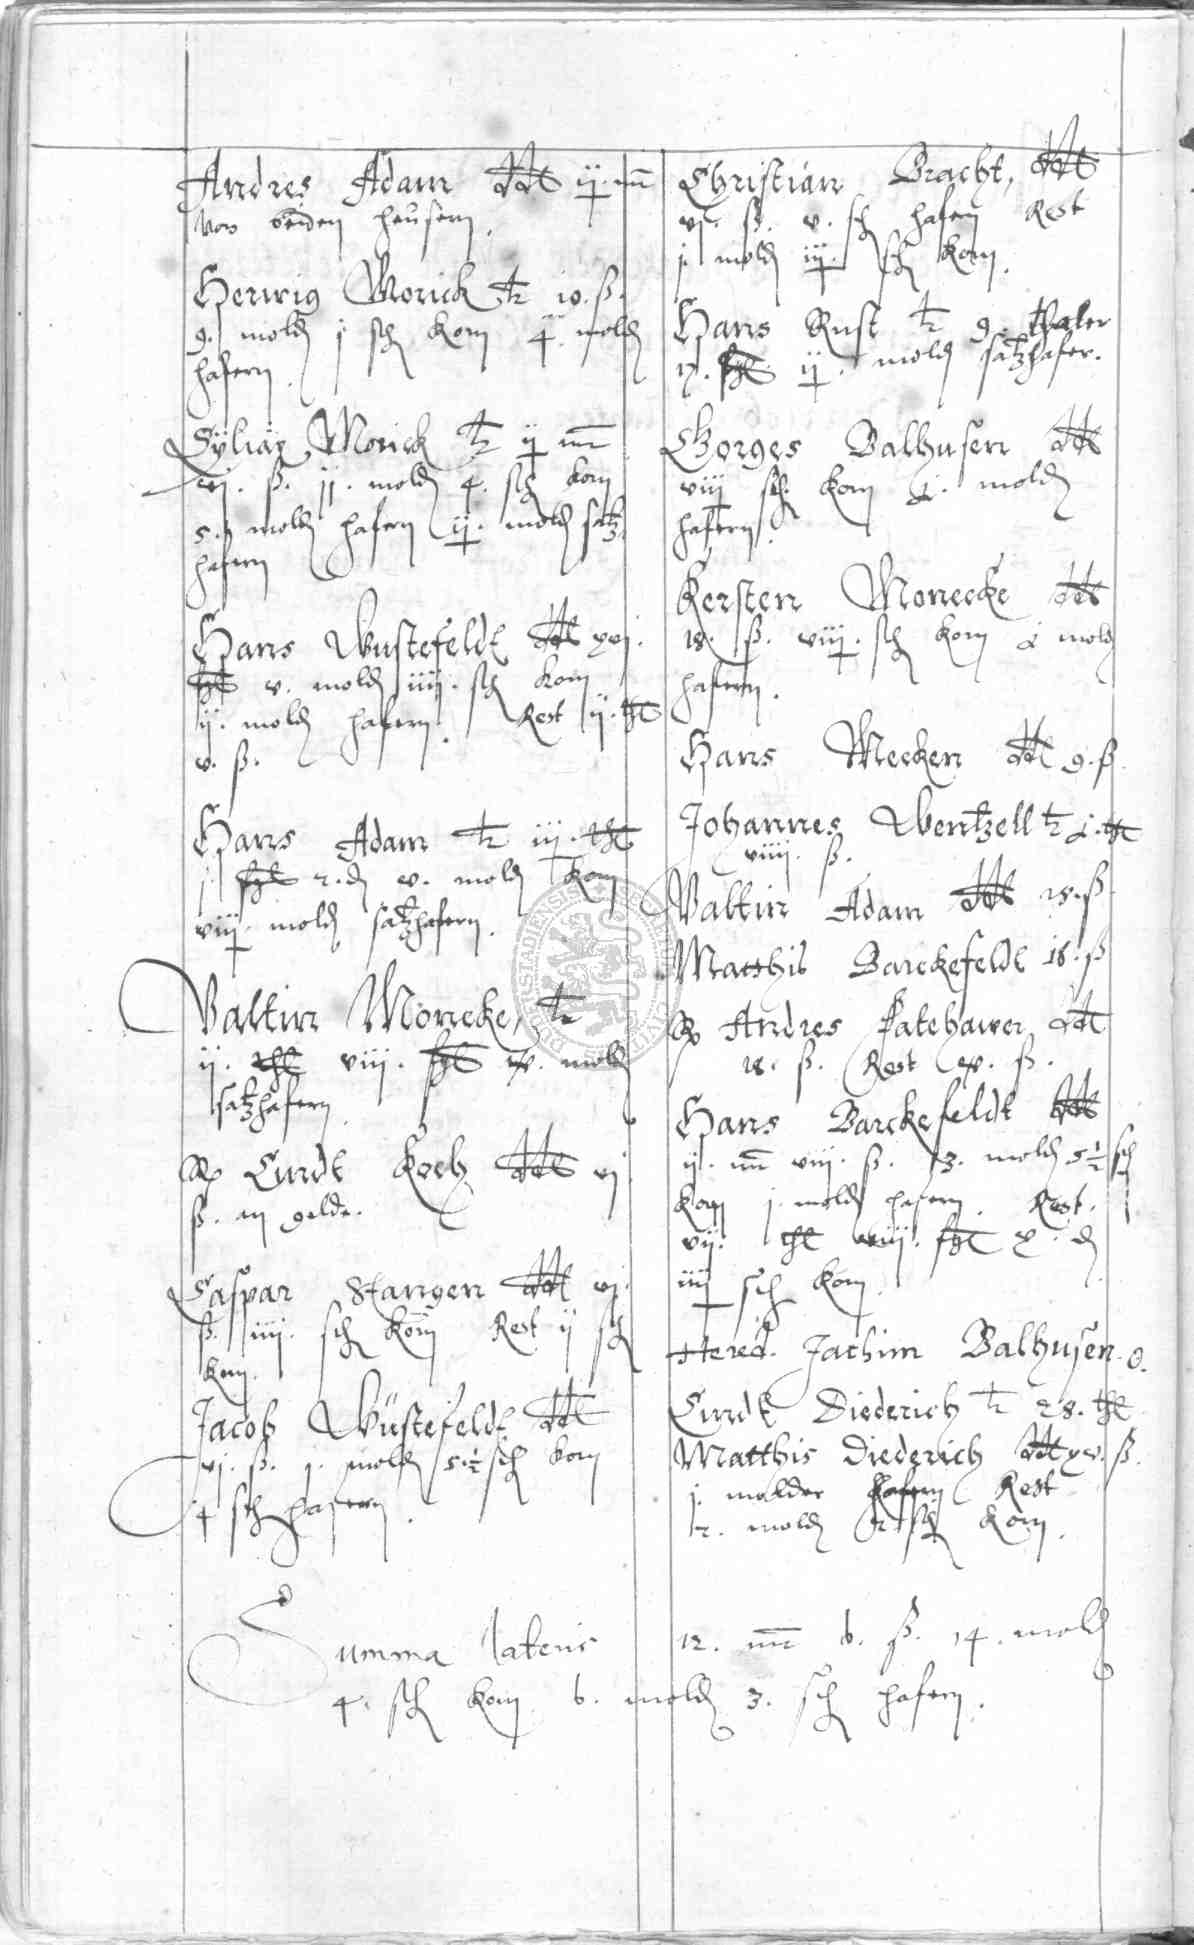 Andres Adam ddt ij mr
von beiden heusern.
Herwig Morick tr 10. ß.
9. mold j sch korn 4. mold
hafern.
Cyliax Morick tr ij mr
vj. ß. jj. mold 4. sch korn
5. mold hafern ij. mold satz
hafern
Hans Wustefeldt ddt xvj.
v. mold iiij. sch korn
ij. mold hafern. Rest ij. thl
v. ß.
Hans Adam tr iij. thl
j 2. d v. mold korn
viij mold satzhafern.
Valtin Monecke, tr
ij. thl viij. mold
satzhafern.
Curdt Koch ddt vj
ß. an gelde.
Caspar Stangen ddt vj.
ß. iiij. sch korn Rest ij sch
korn.
Jacob Wüstefeldt ddt
vj. ß. j. mold 5½ sch korn
4 sch hafern.
Christian Bracht, ddt
vj. ß. v. sch hafern Rest
j. mold iij. sch korn.
Hans Rust tr 9. thaler
ij. mold satzhafer.
Gorges Balhusen ddt
viij sch. korn mold
hafern.
Kersten Monecke ddt
18. ß. viij. sch korn mold
hafern.
Hans Mecken ddt 9. ß.
Johannes Wentzell tr thl
viiij. ß.
Valtin Adam ddt 15. ß
Matthis Barckefeldt 18. ß
Andres Fatehawer ddt
18. ß. Rest ß.
Hans Barckefeldt ddt
ij. mr viij. ß. 3. mold 5½ sch
korn j. mold hafern. Rest.
vij. thl x. d
iiij sch korn.
Hered. Jachim Balhusen. 0.
Curdt Diederich tr 28. thl
Matthis Diederich ddt xv. ß.
j. malder hafern Rest
2. mold 2 sch korn.
Summa lateris 12. mr 6. ß. 14. mold
4. sch korn 6. mold 3. sch hafern.